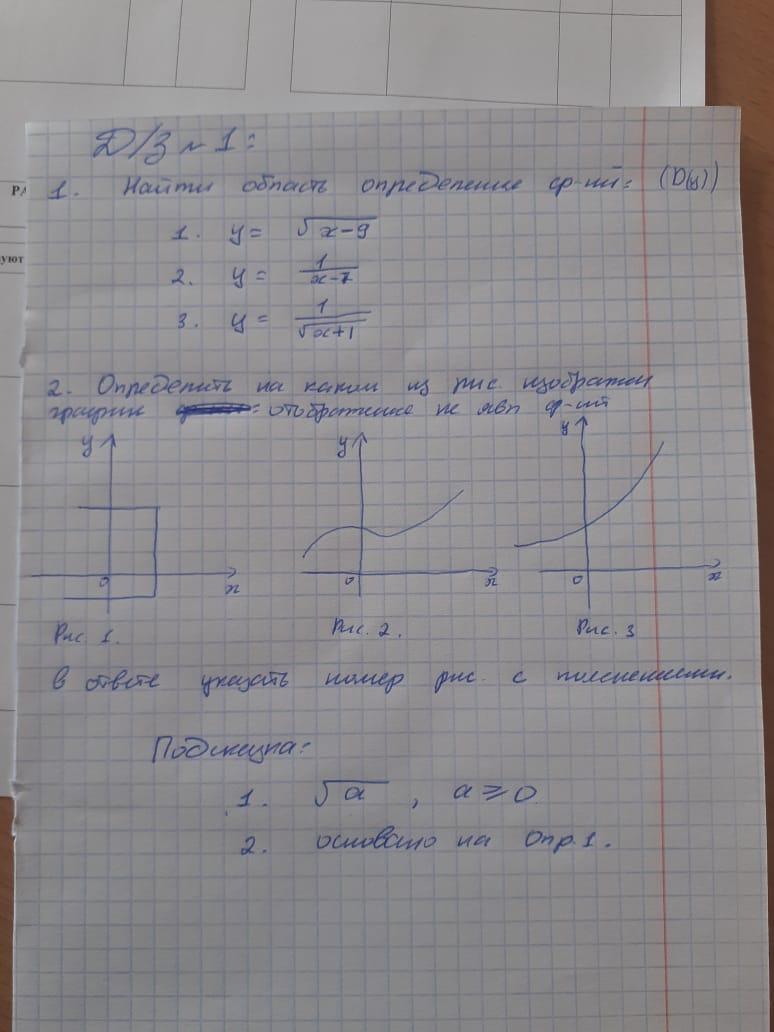 Д/З №1:
1. Найти область определение ф-ий: (D(y))
1. y = √x-9
2. y = 1/x-7
3. y = 1/√x+1
2. Определить на каком из рис изображен
график отображение не явл ф-ий
y y y
0 x 0 x 0 x
Рис 1. Рис. 2. Рис. 3
В ответе указать номер рис. с пояснениями.
Подсказка:
1. √a , a ≥ 0
2. основано на Опр.1.